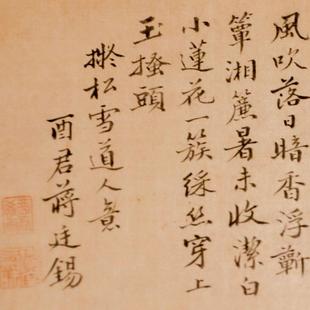 風吹落日暗香浮蘄
簟湘簾暑未收潔白
小蓮花一簇綵絲穿上
玉搔頭
擬松雪道人意
酉君蔣廷錫